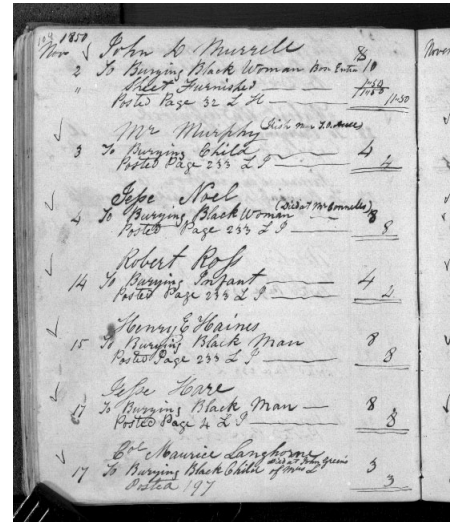 104 1850
Nov John D Murrell $
2 To Burying Black Woman Box Extra 10
" Sheet Furnished 1-50
Posted Page 32 L H 11-50
Mr Murphy (Irish
3 To Burying Child 4
Posted Page 233 L I 4
Jesse Noel
4 To Burying Black Woman (Died at McConnells) 8
Posted Page 233 L I 8
Robert Ross
14 To Burying Infant 4
Posted Page 233 L I 4
Henry E Haines
15 To Burying Black Man 8
Posted Page 233 L I 8
Jesse Hare
17 To Burying Black Man 8
Posted Page 4 L I 8
Col Maurice Langhorne
17 To Burying Black Child of Mrs L Died at John Greens 3
Posted 197 3
Novem